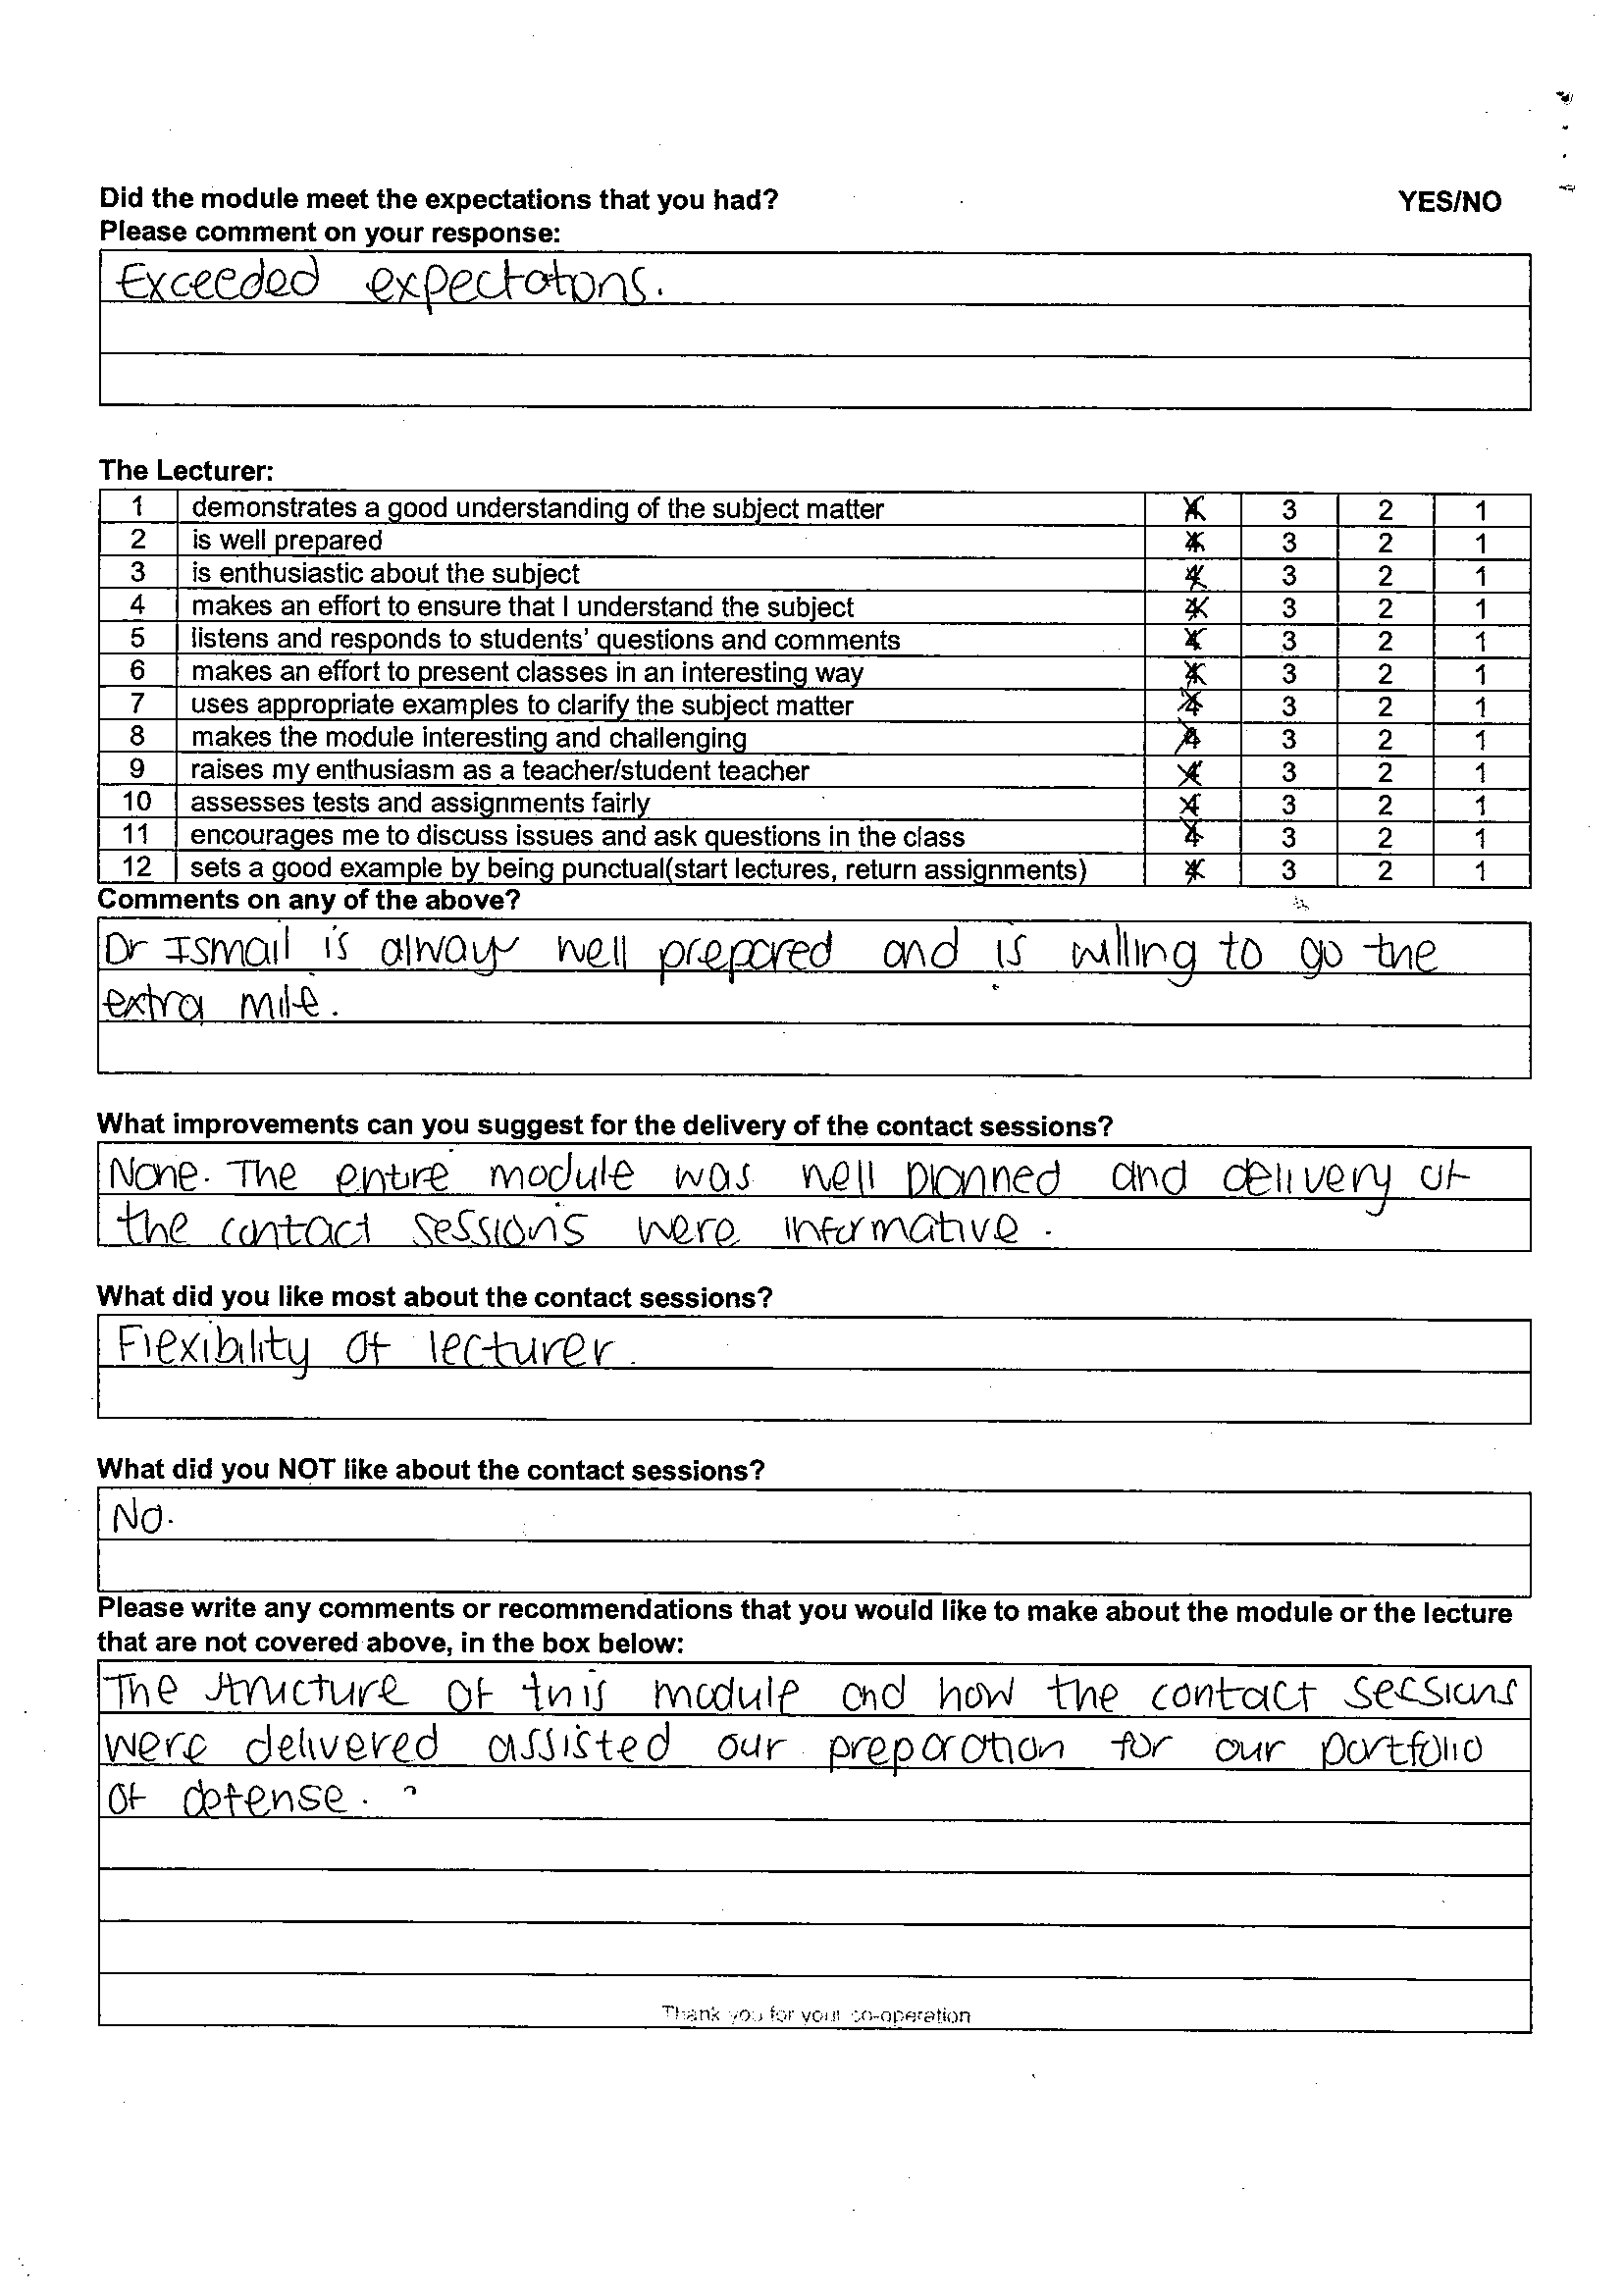 Did the module meet the expectations that you had? YES/NO
Please comment on your response:
Exceeded expectatons.
The Lecturer:
1 demonstrates a good understanding of the subject matter 4 3 2 1
2 is well prepared 4 3 2 1
3 is enthusiastic about the subject 4 3 2 1
4 makes an effort to ensure that I understand the subject 4 3 2 1
5 listens and responds to students' questions and comments 4 3 2 1
6 makes an effort to present classes in an interesting way 4 3 2 1
7 uses appropriate examples to clarify the subject matter 4 3 2 1
8 makes the module interesting and challenging 4 3 2 1
9 raises my enthusiasm as a teacher/student teacher 4 3 2 1
10 assesses tests and assignments fairly 4 3 2 1
11 encourages me to discuss issues and ask questions in the class 4 3 2 1
12 sets a good example by being punctual(start lectures, return assignments) 4 3 2 1
Comments on any of the above?
Dr Ismail is always well prepared and is willing to go the
extra mile.
What improvements can you suggest for the delivery of the contact sessions?
None. The entire module was well planned and delivery of
the contact sessions were informative.
What did you like most about the contact sessions?
Flexibility of lecturer.
What did you NOT like about the contact sessions?
No.
Please write any comments or recommendations that you would like to make about the module or the lecture
that are not covered above, in the box below:
The structure of this module and how the contact sessions
were delivered assisted our preparation for our portfolio
of defense.
Thank you for your co-operation